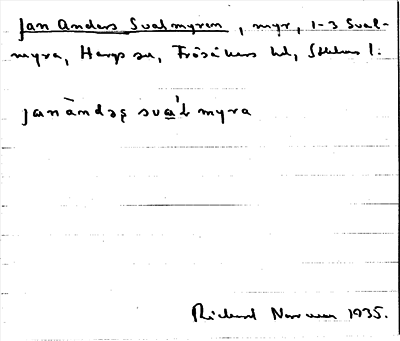 Jan Anders Svalmyren, myr, 1-3 Sval-
myra, Hargs sn, Frösåkers hd, Sthlms l.
janàndəʂ sva'ɫmyra
Richard Norman 1935.